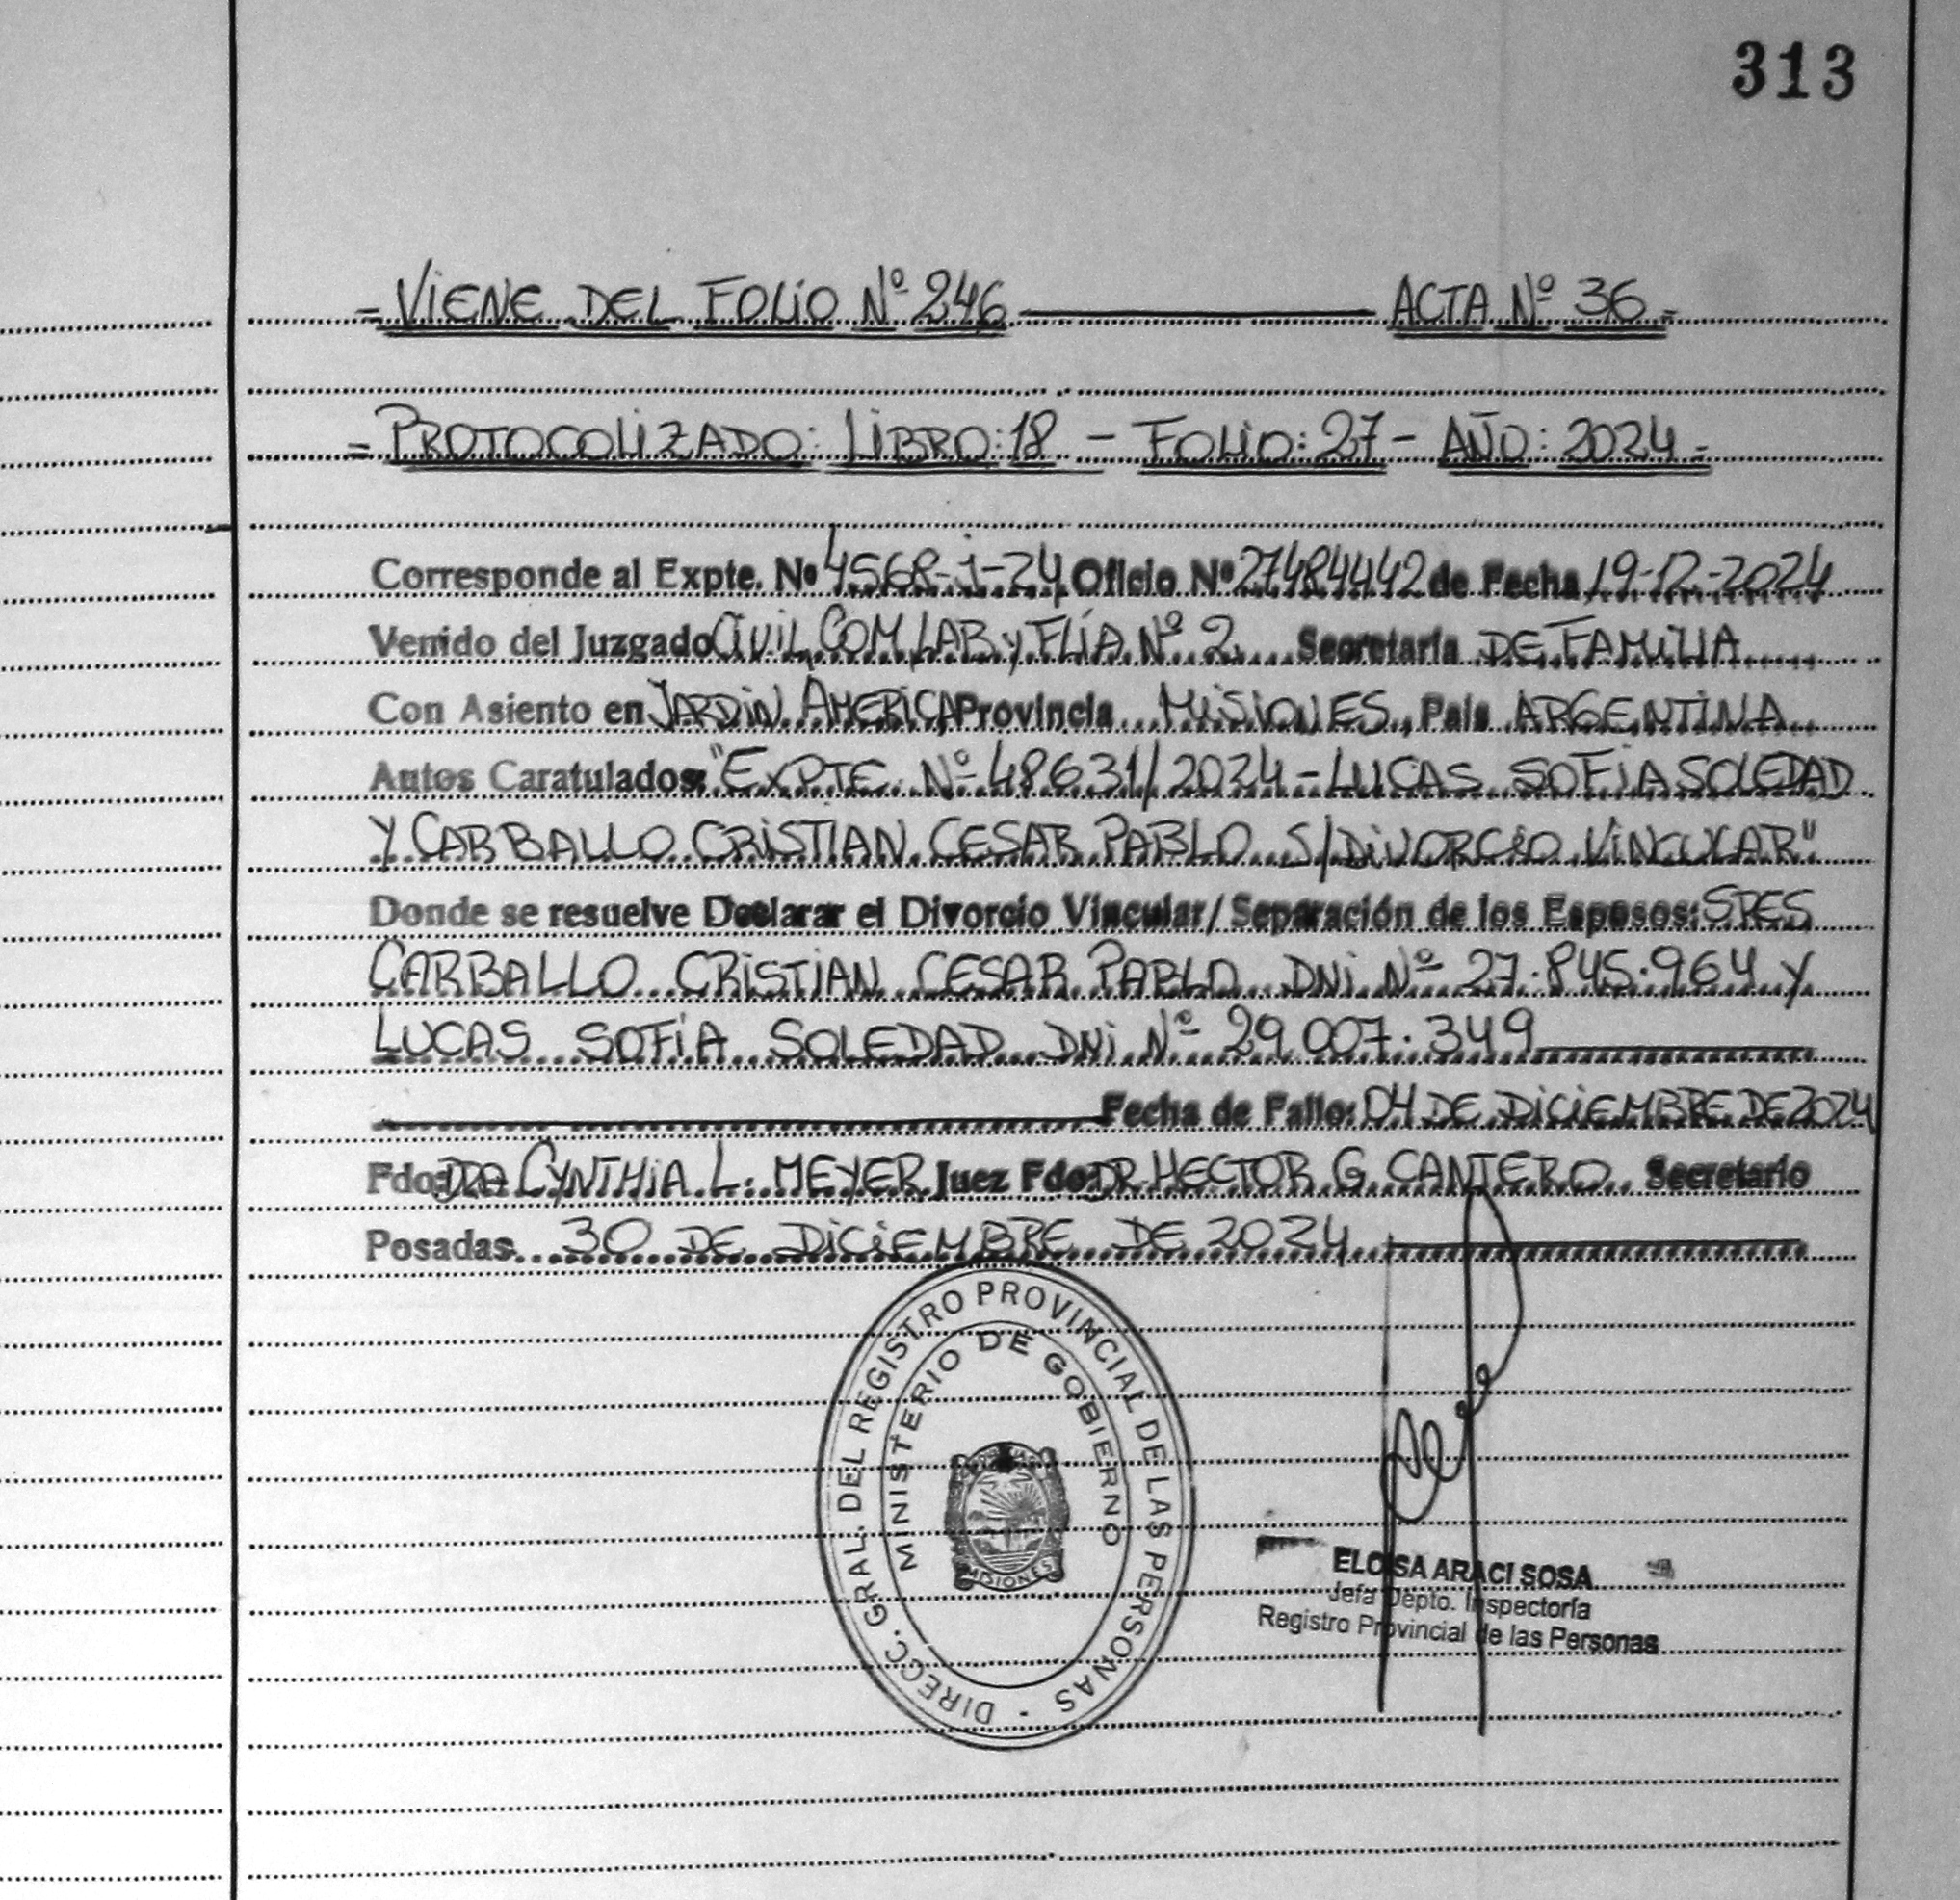 313
= VIENE DEL FOLIO Nº 246 ACTA Nº 36 =
= PROTOCOLIZADO: LIBRO: 18 - FOLIO: 27 - AÑO: 2024 =
Corresponde al Expte. Nº 4568-1-24 Oficio Nº 27484442 de Fecha 19-12-2024
Venido del Juzgado CIVIL, COM, LAB y FLÍA Nº 2 Secretaría DE FAMILIA
Con Asiento en JARDIN AMERICA Provincia MISIONES, País ARGENTINA
Autos Caratulados: "EXPTE Nº 48631/2024 - LUCAS SOFIA SOLEDAD
Y CARBALLO CRISTIAN CESAR PABLO S/DIVORCIO VINCULAR"
Donde se resuelve Declarar el Divorcio Vincular/Separación de los Esposos: SRES
CARBALLO CRISTIAN CESAR PABLO DNI Nº 27.845.964 y
LUCAS SOFIA SOLEDAD DNI Nº 29.007.349
Fecha de Fallo: 04 DE DICIEMBRE DE 2024
Fdo: DRA CYNTHIA L. MEYER Juez Fdo: DR HECTOR G. CANTERO Secretario
Posadas 30 DE DICIEMBRE DE 2024
DIRECC. GRAL. DEL REGISTRO PROVINCIAL DE LAS PERSONAS -
MINISTERIO DE GOBIERNO
MISIONES
ELOISA ARACI SOSA
Jefa Depto. Inspectoría
Registro Provincial de las Personas